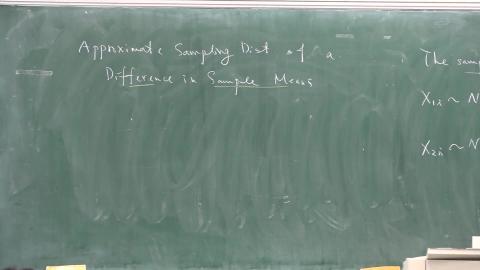 Approximate Sampling Dist of a
Difference in Sample Means
The samp
X₁ᵢ ~ N
X₂ᵢ ~ N